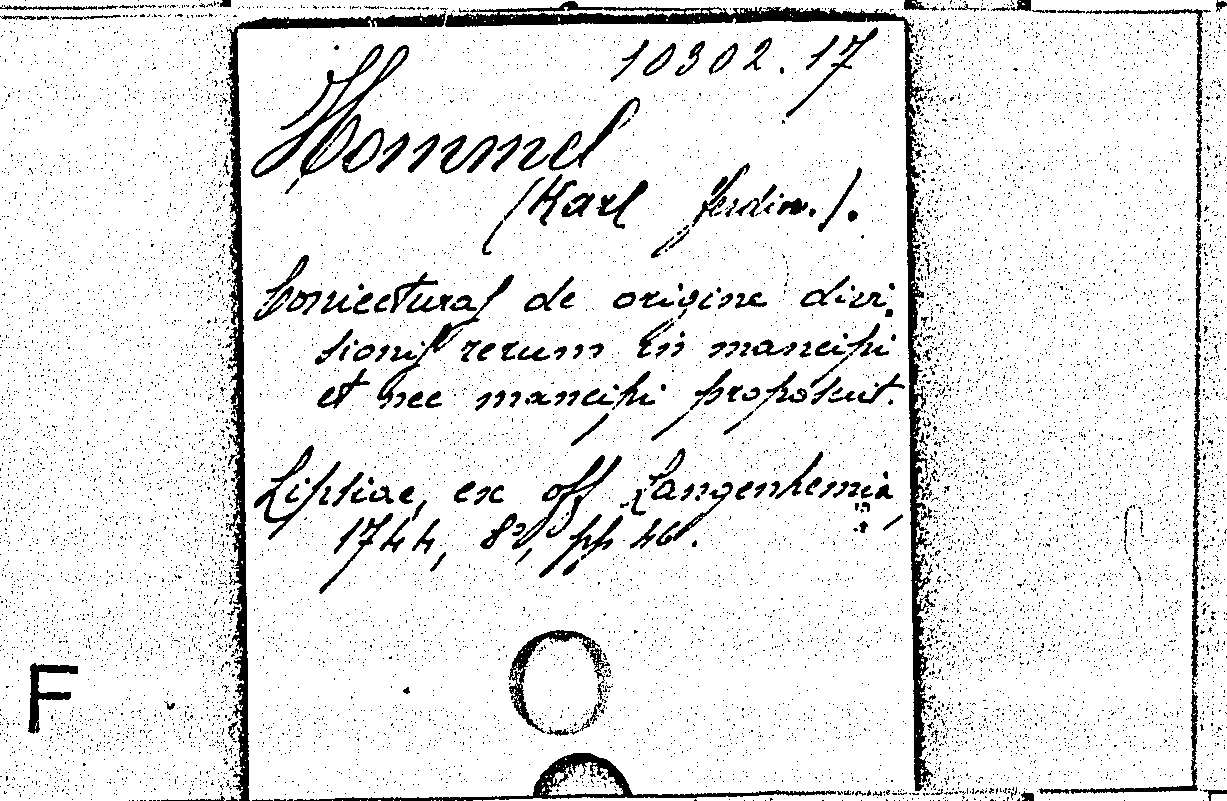 10302.17
Hommel
(Karl Ferdin.).
Coniecturas de origine divi-
sionis rerum in mancipi
et nec mancipi proposuit.
Lipsiae, ex off Langenhemia,
1744, 8º, pp 46.
F